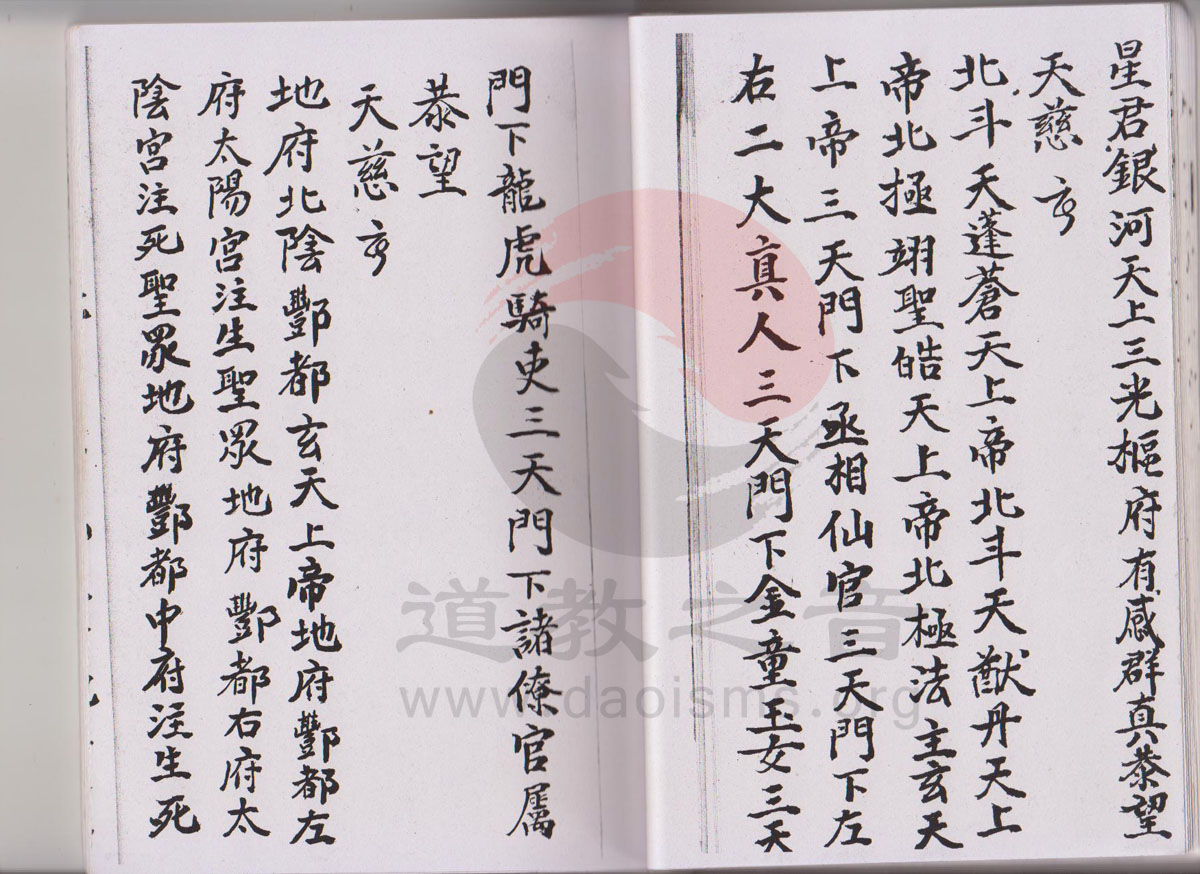 星君銀河天上三光樞府有感群真恭望
天慈 玄
北斗天蓬蒼天上帝北斗天猷丹天上
帝北極翊聖皓天上帝北極法主玄天
上帝三天門下丞相仙官三天門下左
右二大真人三天門下金童玉女三天
門下龍虎騎吏三天門下諸僚官属
恭望
天慈玄
地府北陰酆都玄天上帝地府酆都左
府太陽宮注生聖眾地府酆都右府太
陰宮注死聖眾地府酆都中府注生死
道教之音
www.daoisms.org